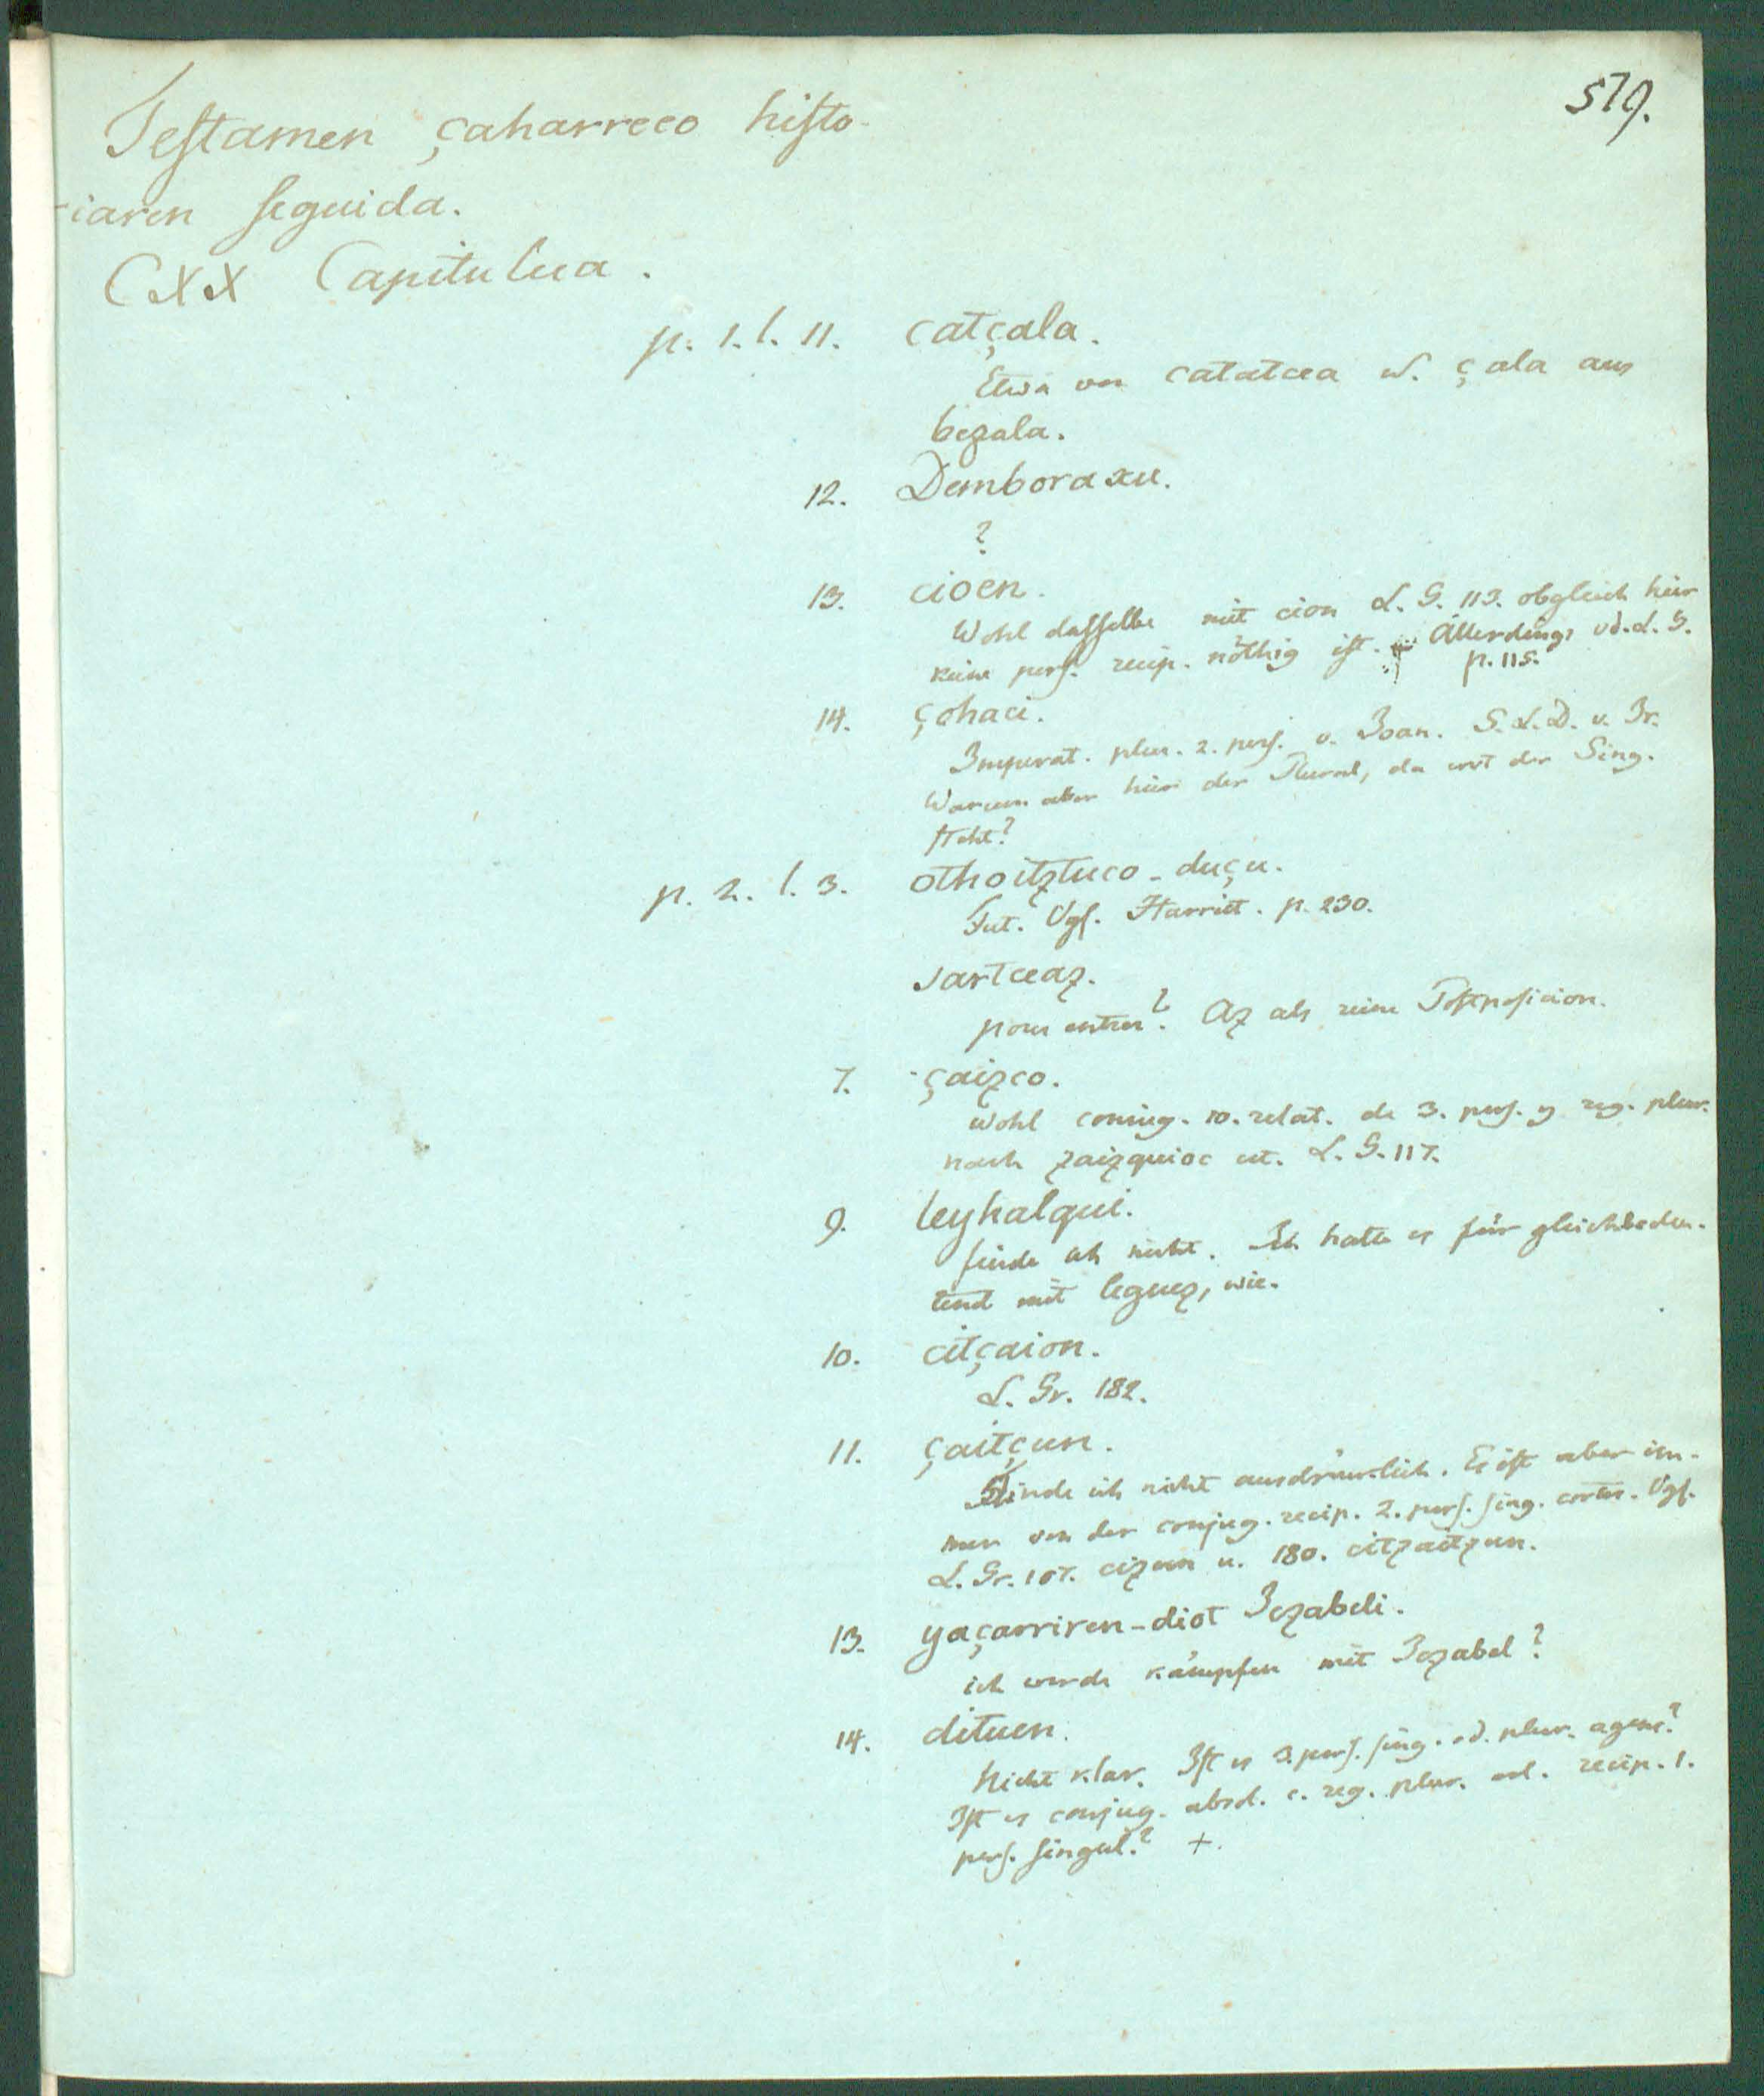 579.
Testamen çaharreco histo-
riaren seguida.
CXX Capitulua.
p. 1. l. 11. catçala.
Etwa von catatcea u. çala aus
bezala.
12. Demboraxu.
?
13. cioen.
Wohl dasselbe mit cion L. G. 113. obgleich hier
keine pers. recip. nöthig ist. Allerdings vd. L. G.
p. 115.
14. çohaci.
Imperat. plur. 2. pers. v. Joan. S. L. D. v. Ir.
Warum aber hier der Plural, da erst der Sing.
steht?
p. 2. l. 3. othoitztuco-duçu.
Fut. Vgl. Harriet. p. 230.
sartceaz.
pour entrer? Az als reine Postposicion.
7. çaizco.
wohl conjug. 10. relat. de 3. pers. y reg. plur.
nach zaizquioc etc. L. G. 117.
9. leyhalqui.
finde ich nicht. Ich halte es für gleichbedeu-
tend mit leguez, wie.
10. citçaion.
L. Gr. 182.
11. çaitçun.
Finde ich nicht ausdrücklich. Es ist aber im-
mer von der conjug. recip. 2. pers. sing. cortes. Vgl.
L. Gr. 107. cizun u. 180. citzaitzun.
13. yaçarriren-diot Jezabeli.
ich werde kämpfen mit Jezabel?
14. dituen.
Nicht klar. Ist es 3. pers. sing. od. plur. agens?
Ist es conjug. absol. c. reg. plur. od. recip. 1.
pers. singul.? +.